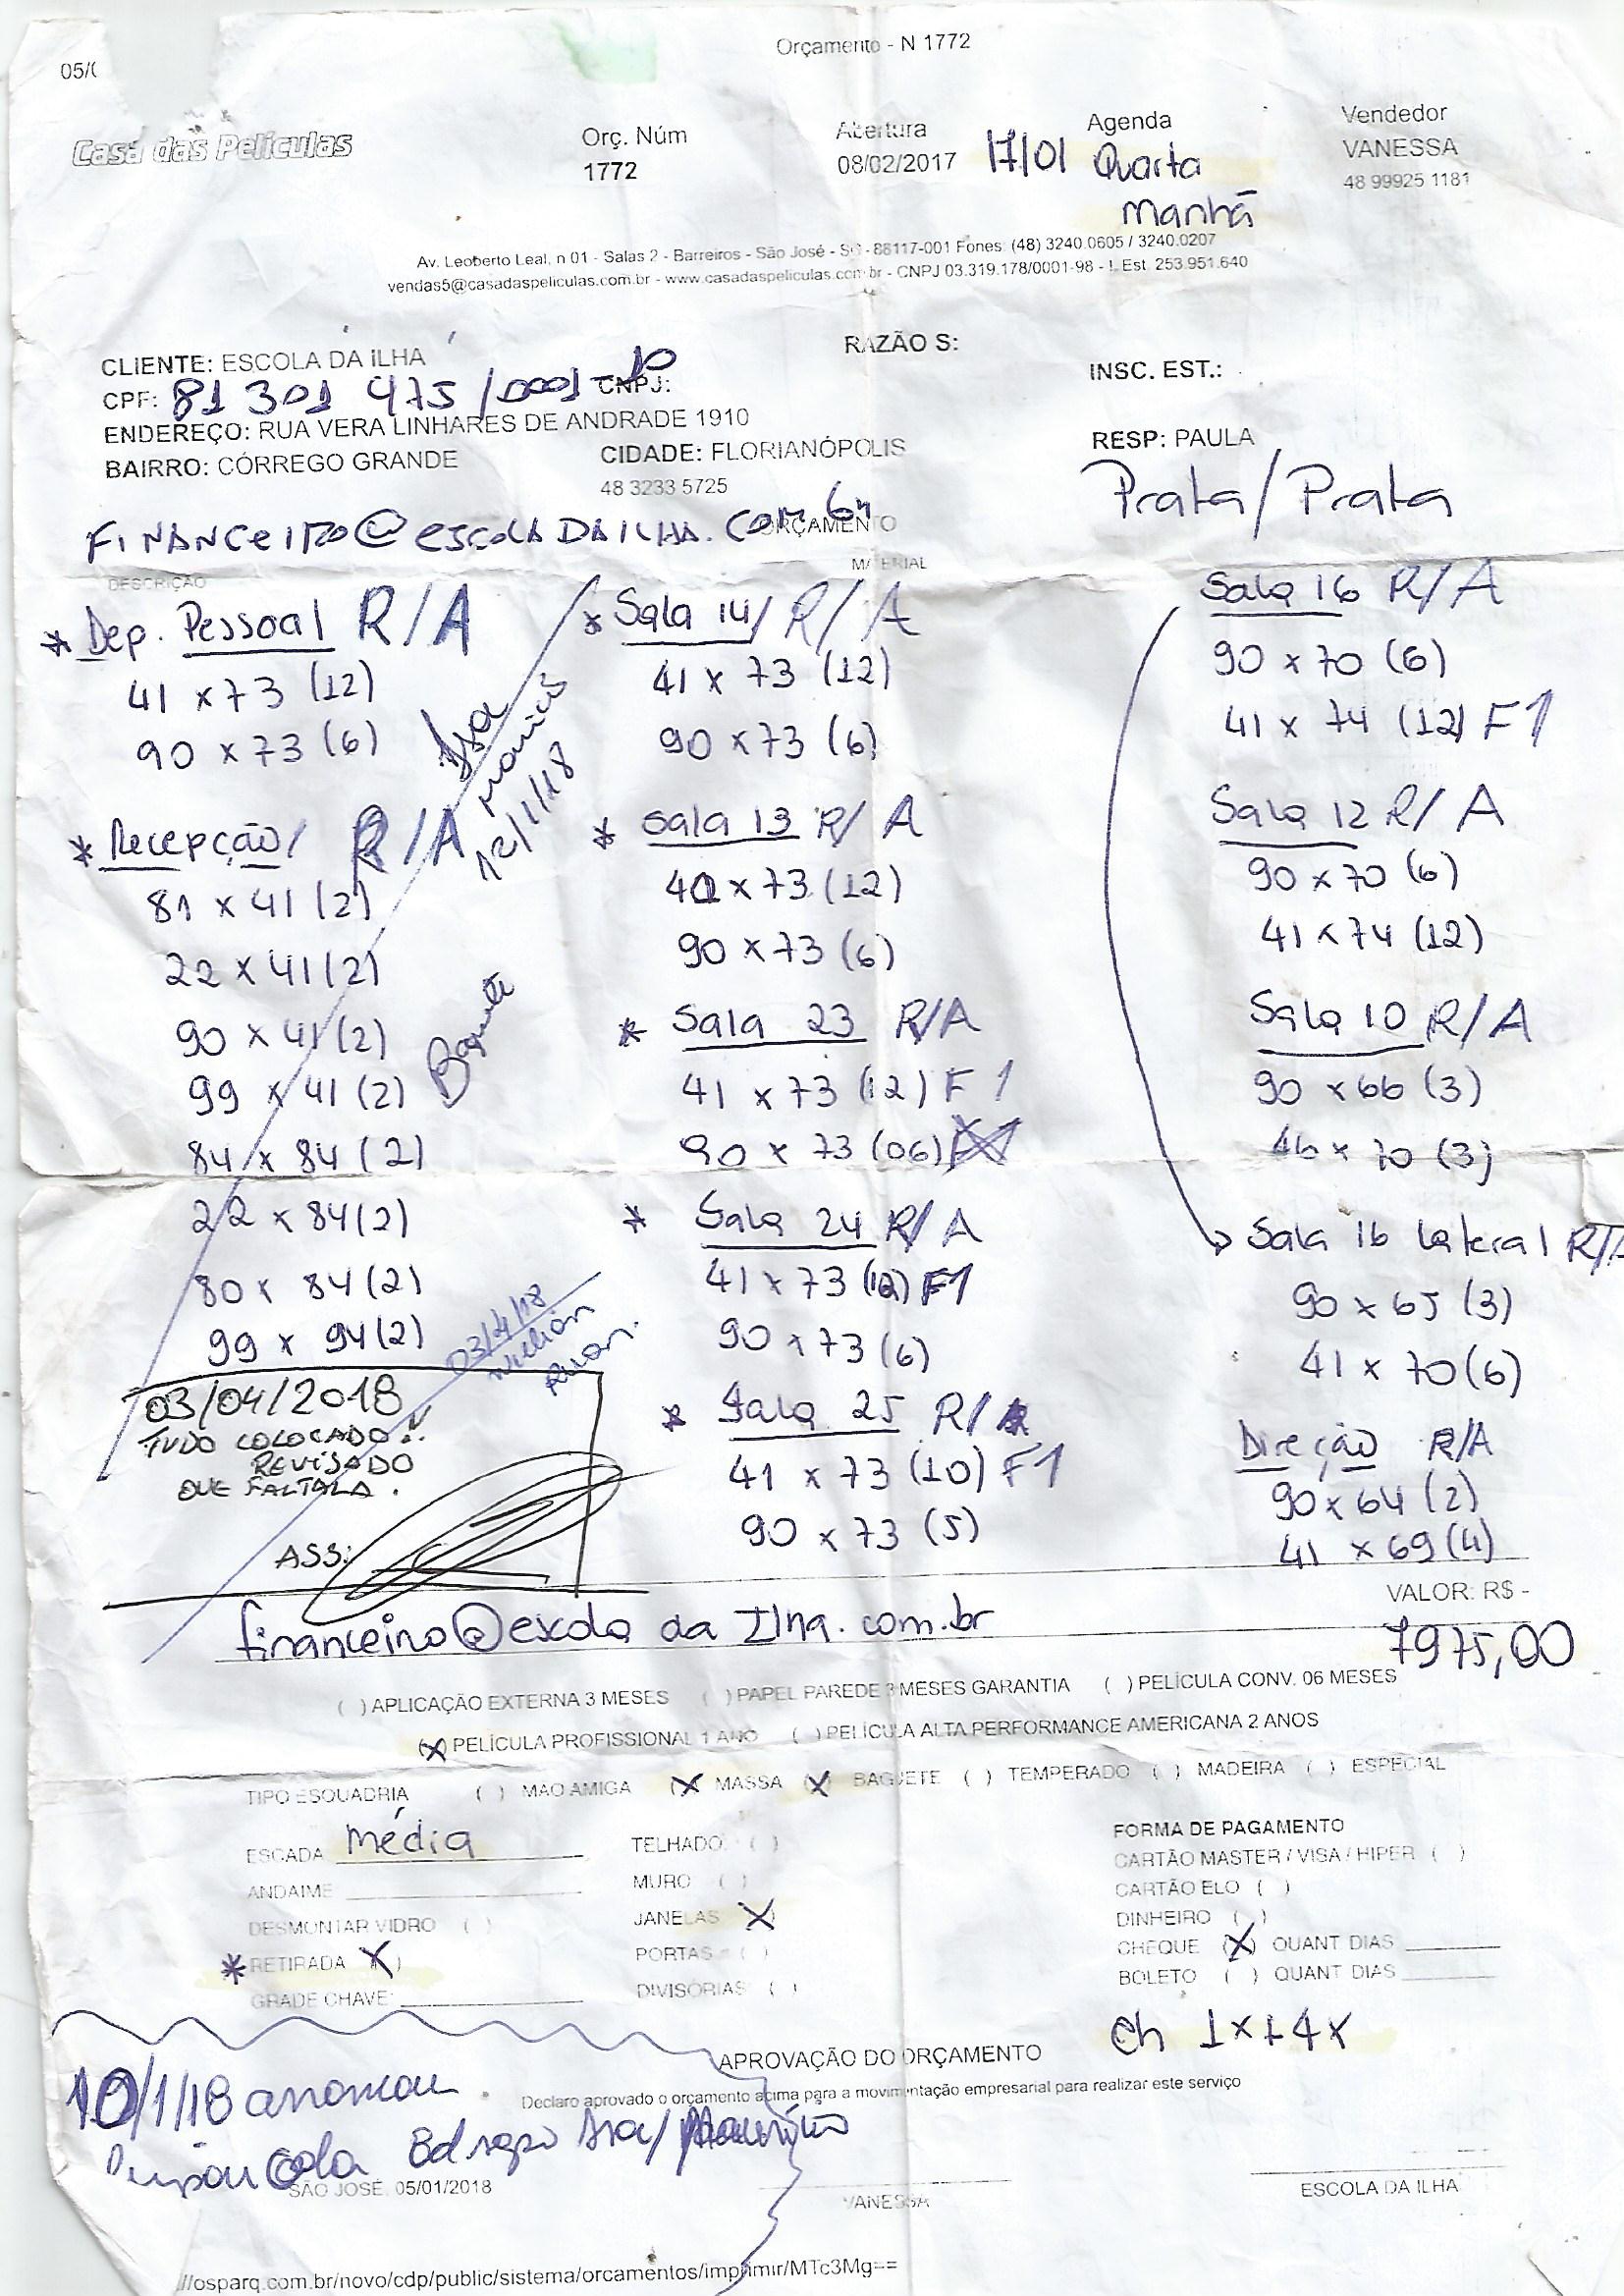 Orçamento - N 1772
05/(
Casa das Películas
Orç. Núm
1772
Abertura
08/02/2017
17/01
Agenda
Quarta
Manhã
Vendedor
VANESSA
48 99925 1181
Av. Leoberto Leal, n 01 - Salas 2 - Barreiros - São José - SC - 88117-001 Fones: (48) 3240.0605 / 3240.0207
vendas5@casadaspeliculas.com.br - www.casadaspeliculas.com.br - CNPJ 03.319.178/0001-98 - I. Est. 253.951.640
CLIENTE: ESCOLA DA ILHA
RAZÃO S:
INSC. EST.:
CPF: 81 301 475/0001-10 CNPJ:
ENDEREÇO: RUA VERA LINHARES DE ANDRADE 1910
BAIRRO: CÓRREGO GRANDE
CIDADE: FLORIANÓPOLIS
48 3233 5725
RESP: PAULA
Prata/Prata
FINANCEIRO@ESCOLADAILHA.COM.br
ORÇAMENTO
DESCRIÇÃO
MATERIAL
* Dep. Pessoal R/A
41 x 73 (12)
90 x 73 (6)
* Recepção/ R/A
81 x 41 (2)
22 x 41 (2)
90 x 41 (2)
99 x 41 (2)
84 x 84 (2)
22 x 84 (2)
80 x 84 (2)
99 x 94 (2)
12/1/18
Baguete
03/4/18
03/04/2018
TUDO COLOCADO!!
REVISADO
QUE FALTAVA.
ASS:
* Sala 14/ R/A
41 x 73 (12)
90 x 73 (6)
* Sala 13 R/A
41 x 73 (12)
90 x 73 (6)
* Sala 23 R/A
41 x 73 (12) F1
90 x 73 (06)
* Sala 24 R/A
41 x 73 (12) F1
90 x 73 (6)
* Sala 25 R/A
41 x 73 (10) F1
90 x 73 (5)
Sala 16 R/A
90 x 70 (6)
41 x 74 (12) F1
Sala 12 R/A
90 x 70 (6)
41 x 74 (12)
Sala 10 R/A
90 x 66 (3)
46 x 70 (3)
Sala 16 lateral R/A
90 x 65 (3)
41 x 70 (6)
Direção R/A
90 x 64 (2)
41 x 69 (4)
VALOR: R$ -
7975,00
financeiro@escola da Ilha.com.br
( ) APLICAÇÃO EXTERNA 3 MESES ( ) PAPEL PAREDE 3 MESES GARANTIA ( ) PELÍCULA CONV. 06 MESES
(X) PELÍCULA PROFISSIONAL 1 ANO ( ) PELÍCULA ALTA PERFORMANCE AMERICANA 2 ANOS
TIPO ESQUADRIA ( ) MAO AMIGA (X) MASSA (X) BAGUETE ( ) TEMPERADO ( ) MADEIRA ( ) ESPECIAL
ESCADA média
ANDAIME
DESMONTAR VIDRO ( )
* RETIRADA (X)
GRADE CHAVE:
TELHADO ( )
MURO ( )
JANELAS X
PORTAS ( )
DIVISÓRIAS ( )
FORMA DE PAGAMENTO
CARTÃO MASTER / VISA / HIPER ( )
CARTÃO ELO ( )
DINHEIRO ( )
CHEQUE (X) QUANT DIAS
BOLETO ( ) QUANT DIAS
Ch 1x+4x
APROVAÇÃO DO ORÇAMENTO
Declaro aprovado o orçamento acima para a movimentação empresarial para realizar este serviço
10/1/18
cola
SÃO JOSÉ, 05/01/2018
VANESSA
ESCOLA DA ILHA
//osparq.com.br/novo/cdp/public/sistema/orcamentos/imprimir/MTc3Mg==